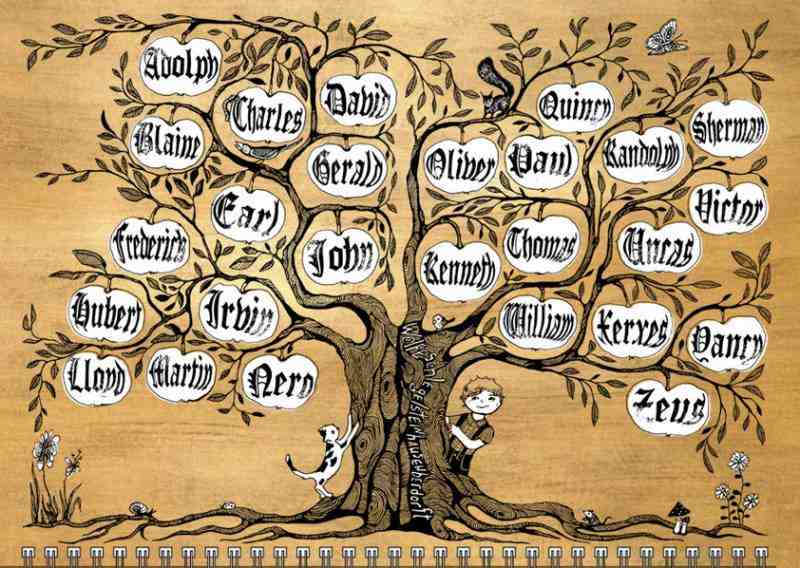 Adolph
Charles
David
Quincy
Sherman
Blaine
Gerald
Oliver
Paul
Randolph
Earl
Victor
Frederick
John
Kenneth
Thomas
Uncas
Hubert
Irvin
William
Xerxes
Yancy
Lloyd
Martin
Nero
Zeus